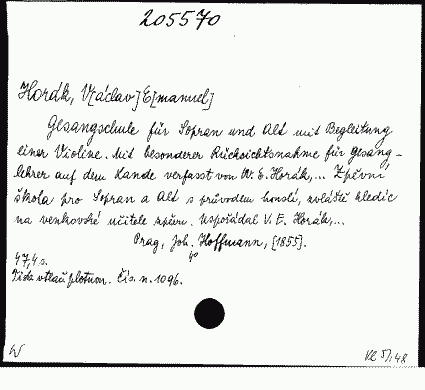 205570
Horák, V[áclav] E[manuel]
Gesangschule für Sopran und Alt mit Begleitung
einer Violine. Mit besonderer Rücksichtsnahme für Gesang-
lehrer auf dem Lande verfasst von W. E. Horák,... Zpěvní
škola pro Sopran a Alt s průvodem houslí, zvláště hledíc
na venkovské učitele zpěvu. Uspořádal V. E. Horák,...
Prag, Joh. Hoffmann, [1855].
4°
47,4 s.
Tisk z plotnum. Čís. n. 1096.
W